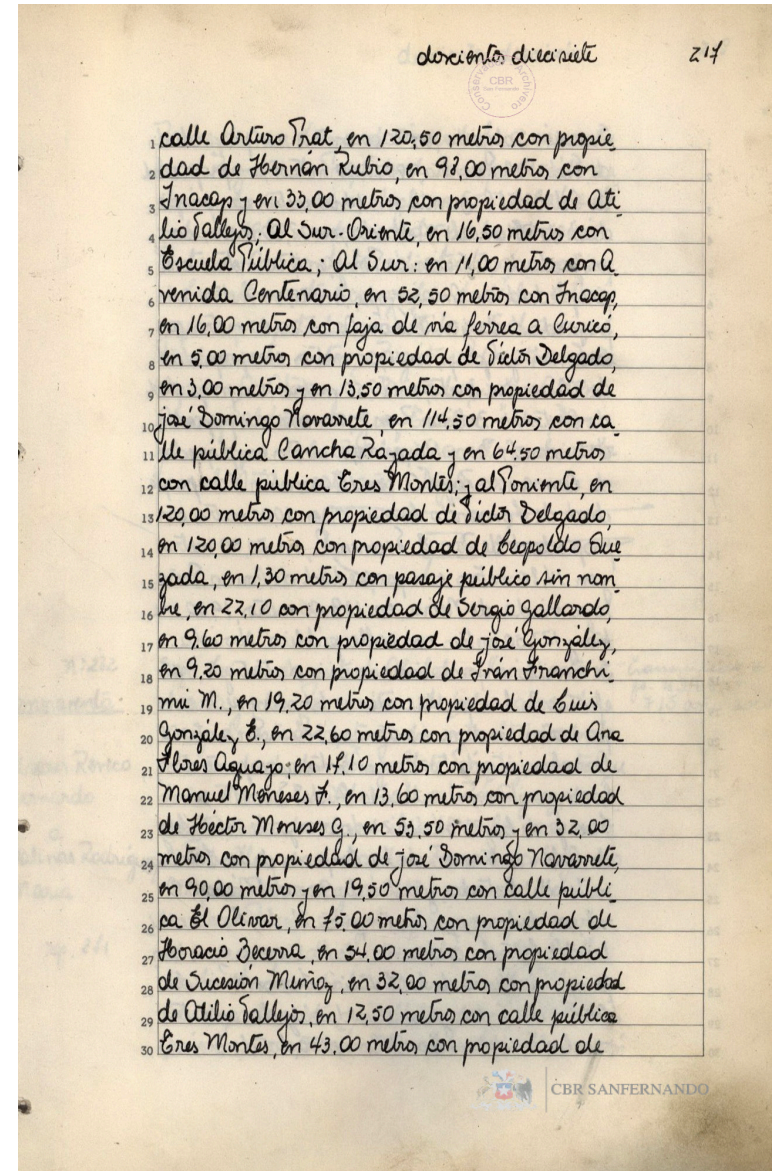 dosciento diecisiete 217
Conservador Archivero
CBR
San Fernando
1 calle Arturo Prat, en 120,50 metros con propie_
2 dad de Hernán Rubio, en 98,00 metros con
3 Inacap y en 33,00 metros con propiedad de Ati_
4 lio Vallejos; Al Sur-Oriente, en 16,50 metros con
5 Escuela Pública; Al Sur: en 11,00 metros con A_
6 venida Centenario, en 52,50 metros con Inacap,
7 en 16,00 metros con faja de vía férrea a Curicó,
8 en 5,00 metros con propiedad de Victor Delgado,
9 en 3,00 metros y en 13,50 metros con propiedad de
10 josé Domingo Navarrete, en 114,50 metros con ca_
11 lle pública Cancha Rayada y en 64,50 metros
12 con calle pública Eres Montes; y al Poniente, en
13 120,00 metros con propiedad de Victor Delgado,
14 en 120,00 metros con propiedad de Leopoldo Que_
15 zada, en 1,30 metros con pasaje público sin nom_
16 bre, en 22,10 con propiedad de Sergio Gallardo,
17 en 9,60 metros con propiedad de josé González,
18 en 9,20 metros con propiedad de Iván Franchi_
19 mi M., en 19,20 metros con propiedad de Luis
20 González E., en 22,60 metros con propiedad de Ana
21 Flores Aguayo; en 17,10 metros con propiedad de
22 Manuel Meneses F., en 13,60 metros con propiedad
23 de Héctor Meneses G., en 53,50 metros y en 32,00
24 metros con propiedad de josé Domingo Navarrete,
25 en 90,00 metros y en 19,50 metros con calle públi_
26 ca El Olivar, en 75,00 metros con propiedad de
27 Horacio Becerra, en 54,00 metros con propiedad
28 de Sucesión Muñoz, en 32,00 metros con propiedad
29 de Atilio Vallejos, en 12,50 metros con calle pública
30 Eres Montes, en 43,00 metros con propiedad de
CBR SANFERNANDO